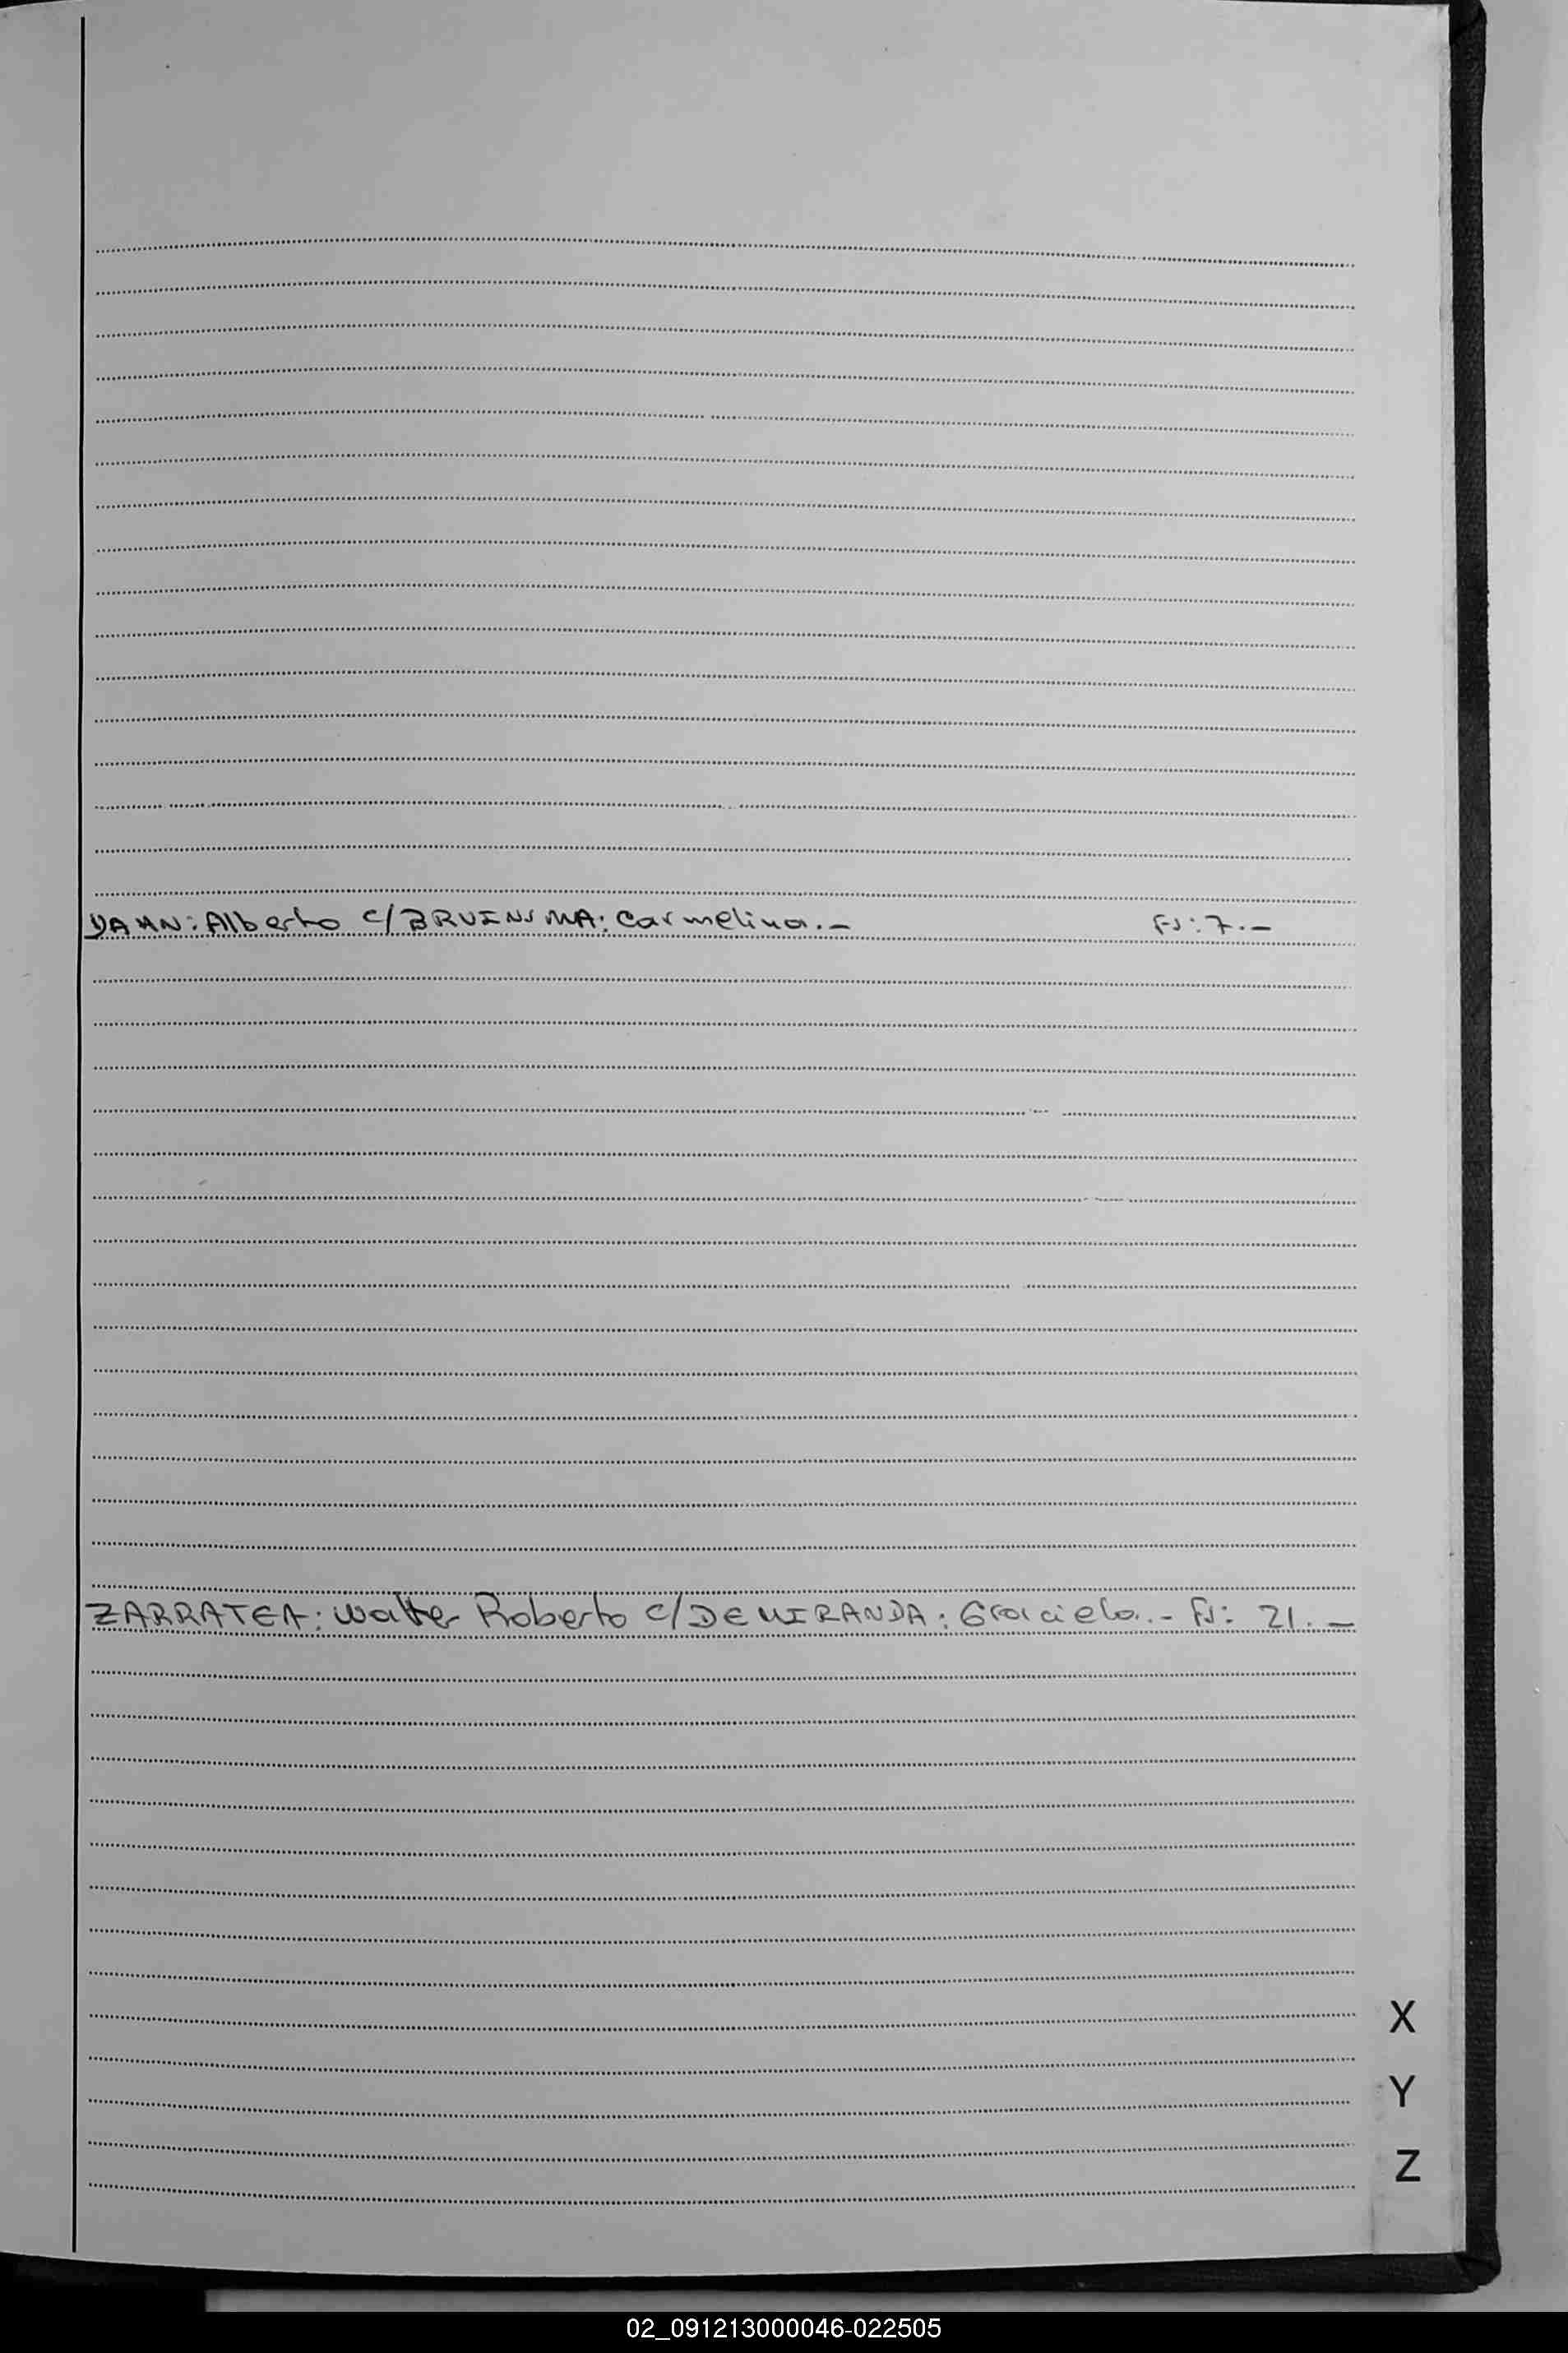 YAHN: Alberto c/BRUINSMA: Carmelina.-  Fs: 7.-
ZARRATEA: Walter Roberto c/DE MIRANDA: Graciela.- Fs: 21.-
X
Y
Z
02_091213000046-022505